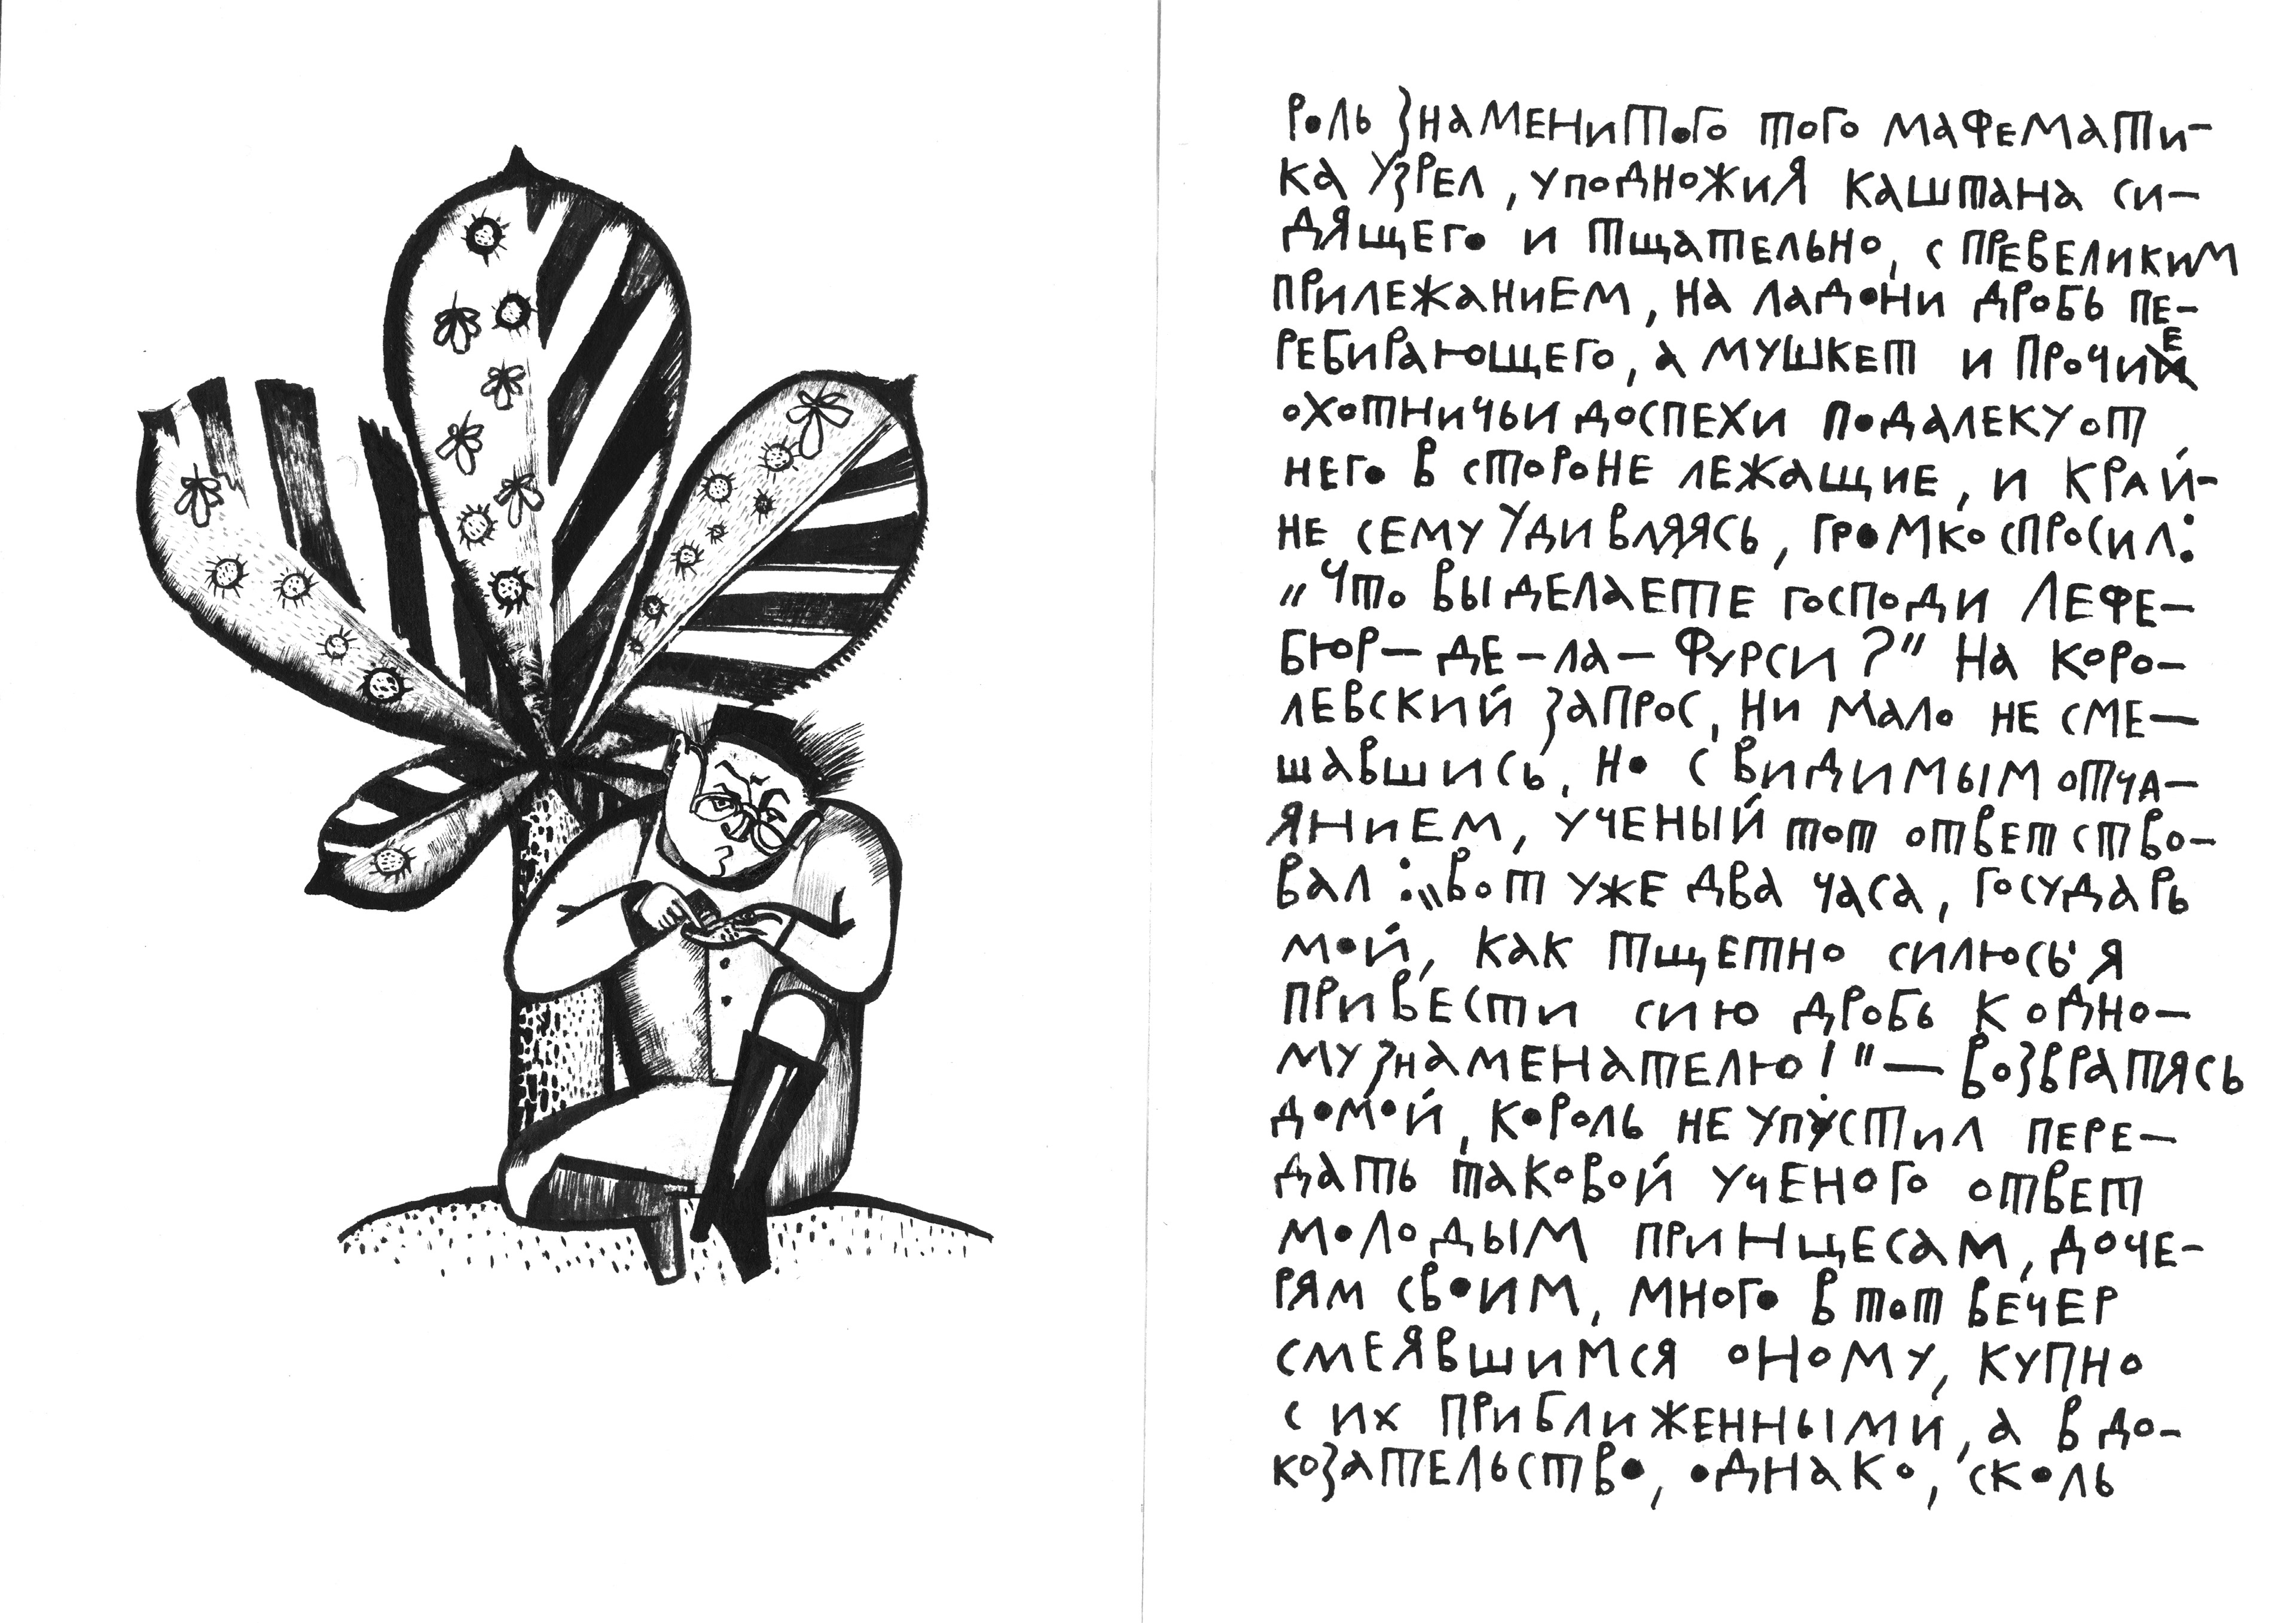 роль знаменитого того мафемати-
ка узрел, у подножия каштана си-
дящего и тщательно, с превеликим
прилежанием, на ладони дробь пе-
ребирающего, а мушкет и прочие
охотничьи доспехи подалеку от
него в стороне лежащие, и край-
не сему удивляясь, громко спросил:
„Что вы делаете господи Лефе-
бюр-де-ла-Фурси?" На коро-
левский запрос, ни мало не сме-
шавшись, но с видимым отча-
янием, ученый тот ответство-
вал: „вот уже два часа, государь
мой, как тщетно силюсь я
привести сию дробь к одно-
му знаменателю!" — возвратясь
домой, король не упустил пере-
дать таковой ученого ответ
молодым принцесам, доче-
рям своим, много в тот вечер
смеявшимся оному, купно
с их приближенными, а в до-
козательство, однако, сколь